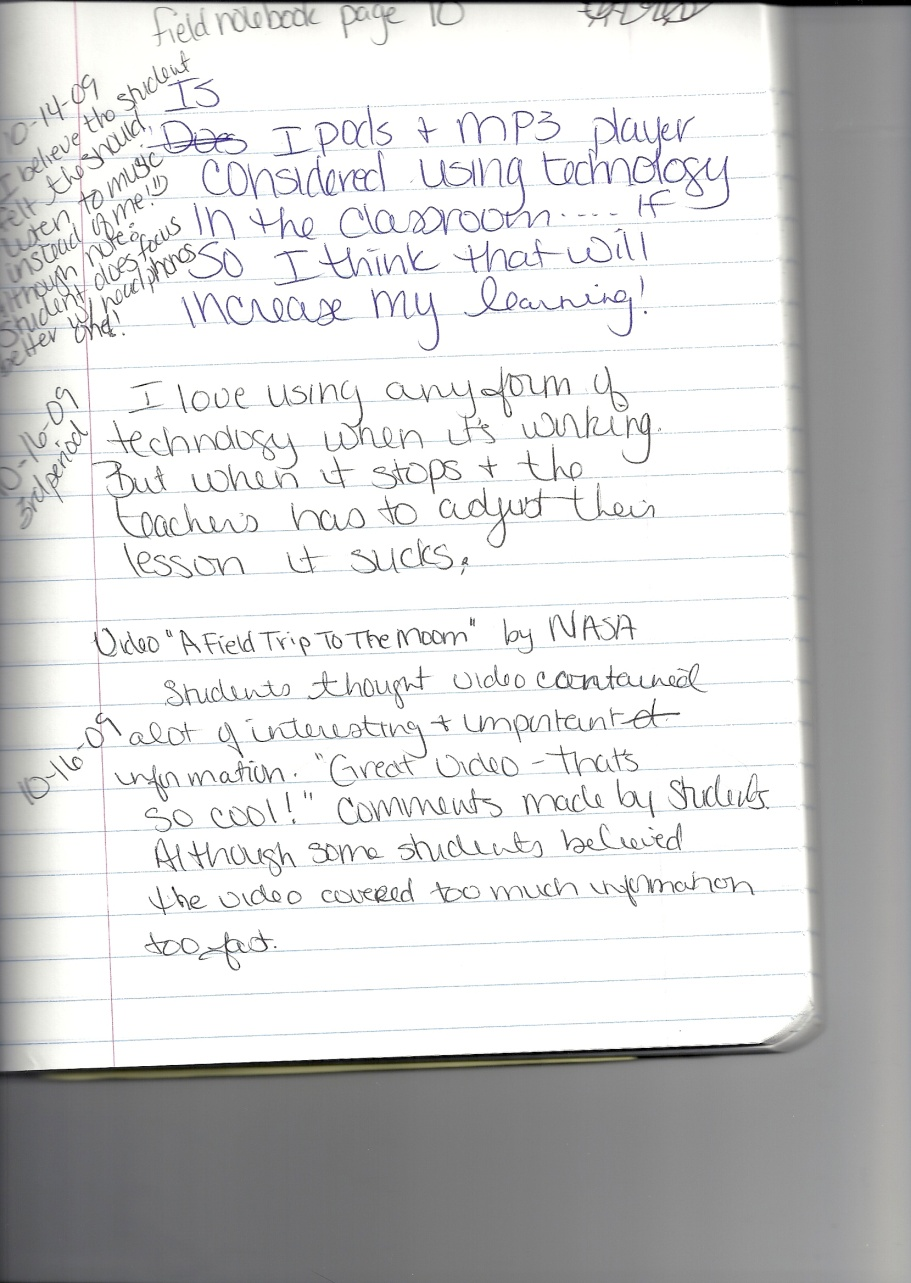 field notebook page 10
10-14-09
I believe the student
felt the should,
listen to music
instead of me!!)
Although note:
Student does focus
better w/ headphones
one!
IS
Does I pods + mp3 player
considered using technology
in the classroom.... If
So I think that will
increase my learning!
10-16-09
3rd period
I love using any form of
technology when it's working.
But when it stops + the
teachers has to adjust their
lesson it sucks.
Video "A Field Trip To The Moom" by NASA
10-16-09
Students thought video contained
alot of interesting + important
information. "Great video - thats
so cool!" Comments made by students.
Although some students believed
the video covered too much information
too fast.